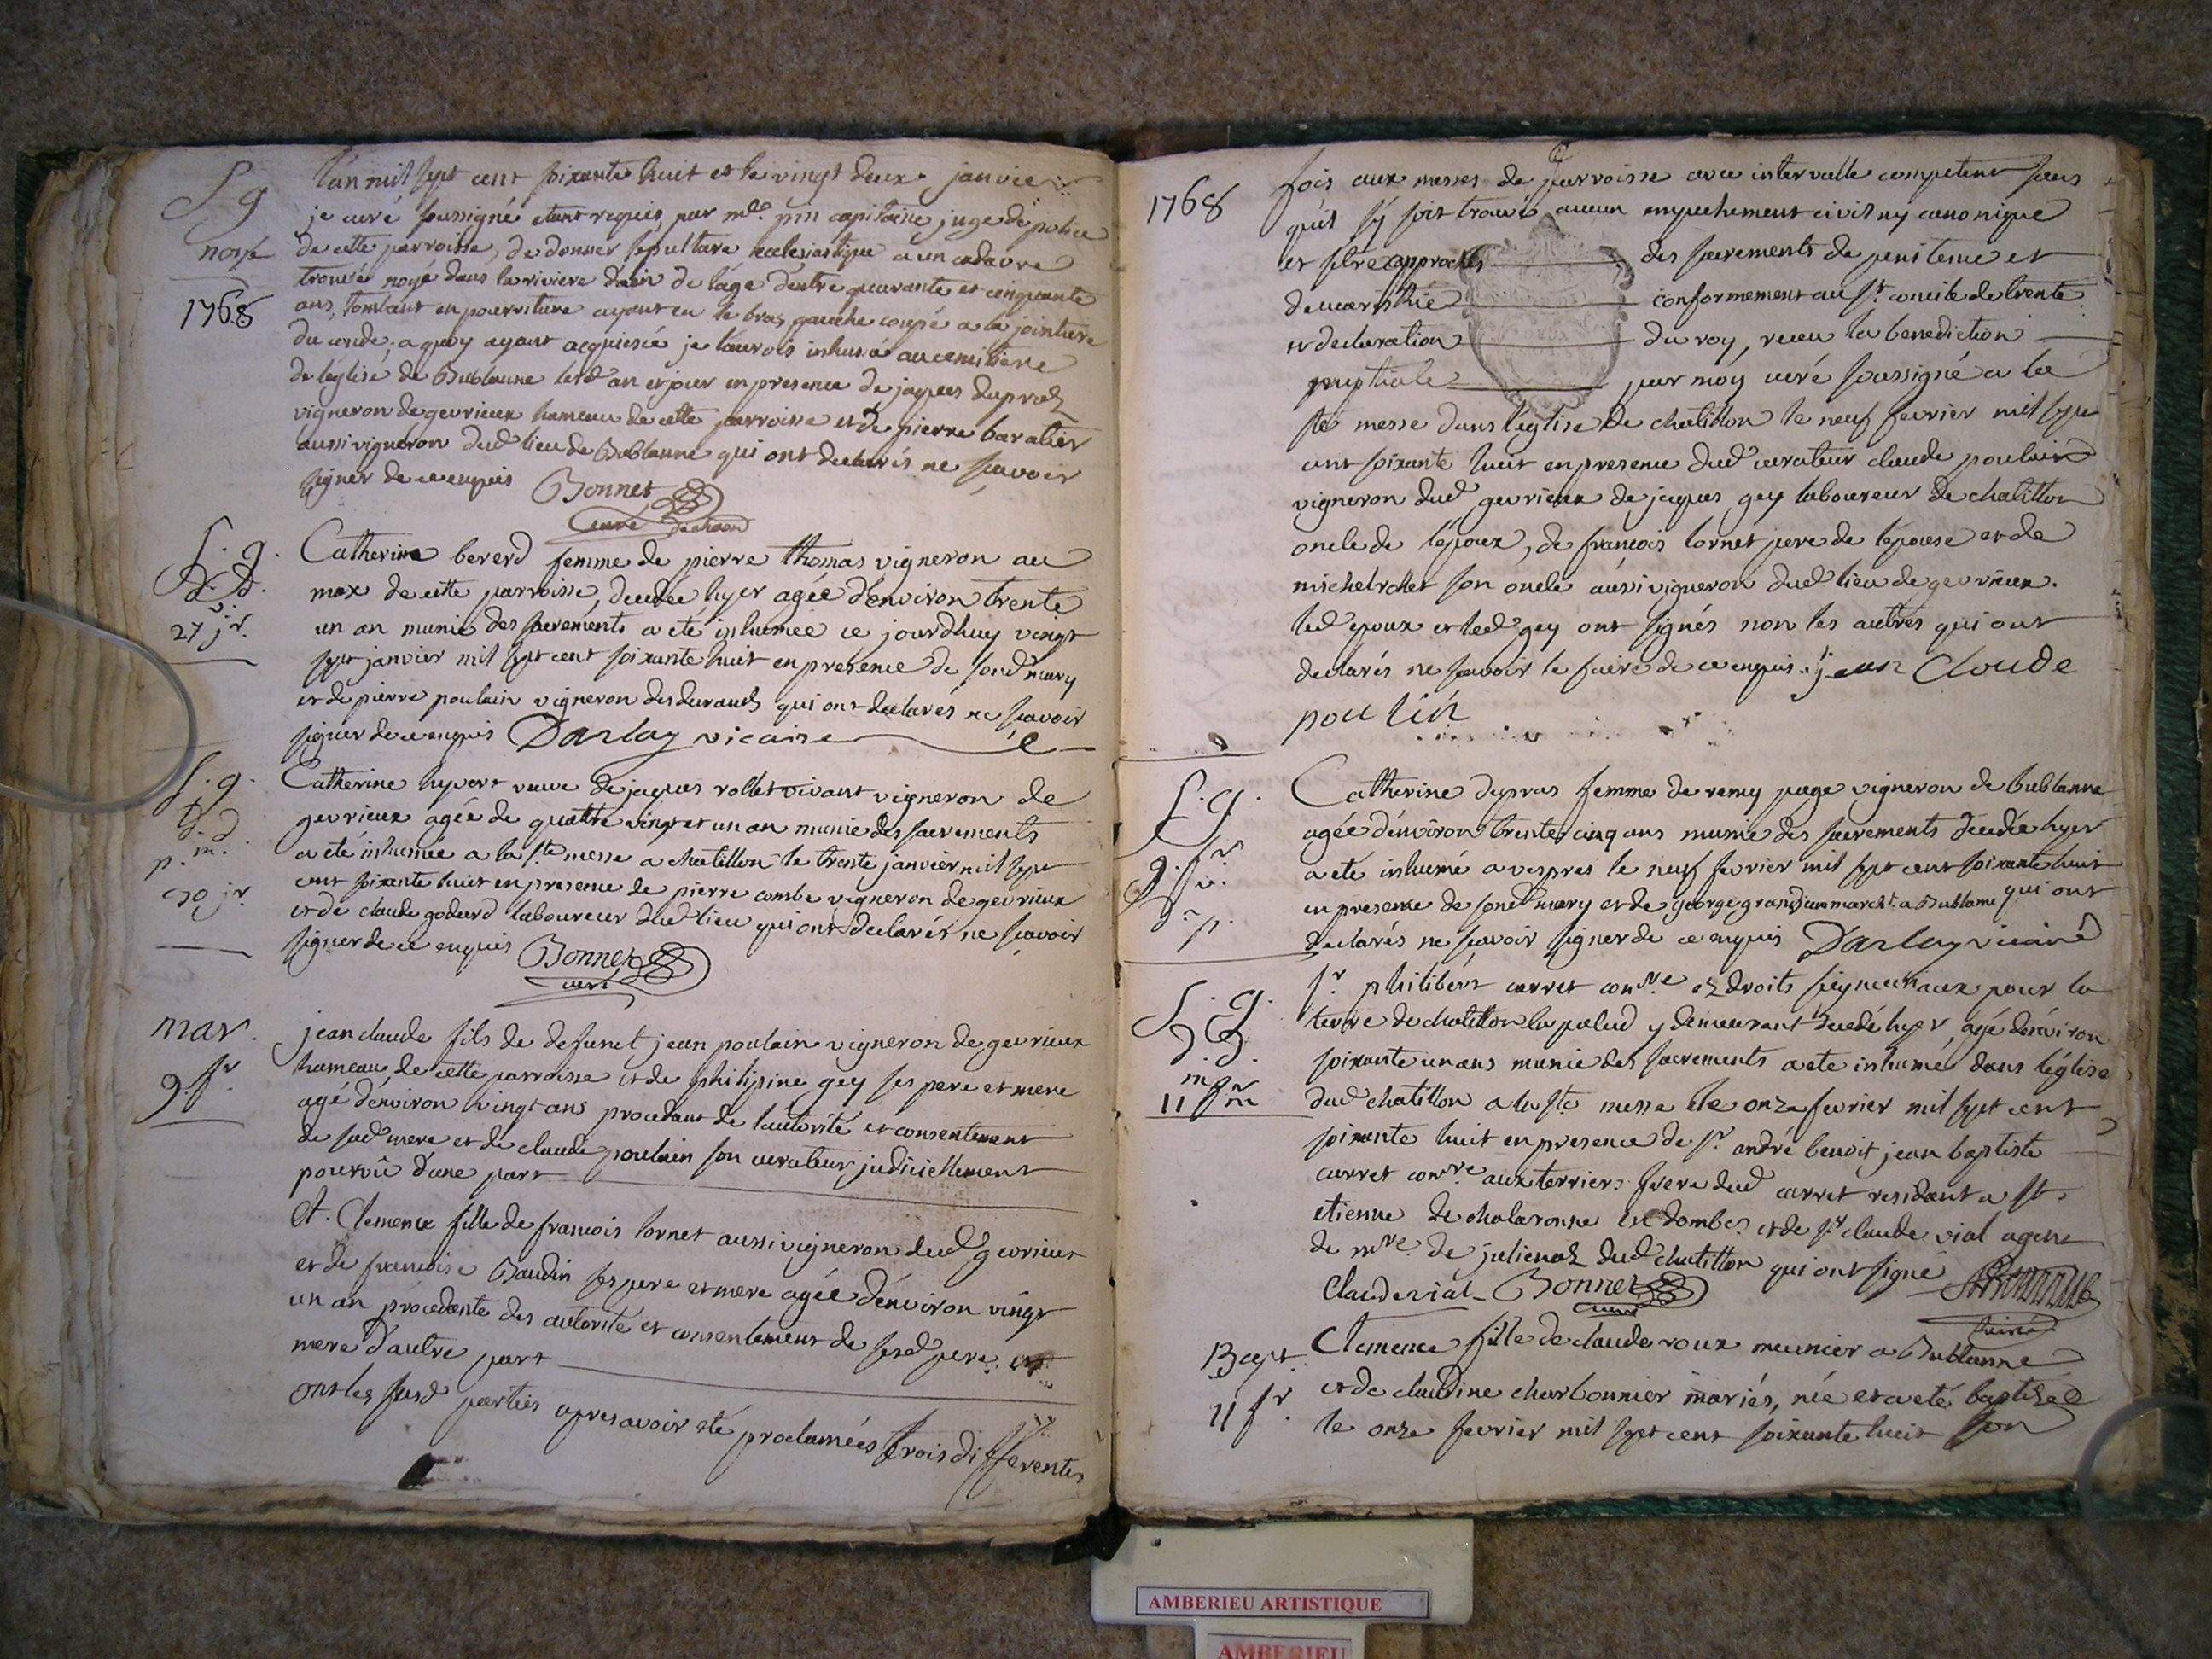 S g
noyé
1768
l'an mil sept cent soixante huit et le vingt deux janvier
je curé soussigné etant requis par capitaine juge de police
de cette parroisse, de donner sepulture ecclesiastique a un cadavre
trouvé noyé dans la riviere d'ain de l'age d'entre quarante et cinquante
ans, tombant en pourriture ayant eu le bras gauche coupé a la jointure
du coude. a quoy ayant acquiescé je l'aurois inhumé au cemitiere
de l'eglise de Bublanne led an et jour en presence de jaques dupraz
vigneron de gevrieux hameau de cette parroisse et de pierre baratier
aussi vigneron dud lieu de Bublanne qui ont declarés ne scavoir
signer de ce enquis Bonnet
curé
S. g.
d. d.
v.
27 jr.
Catherine bererd femme de pierre thomas vigneron au
max de cette parroisse, decedée hyer agée d'environ trente
un an munie des sacrements a eté inhumée ce jourdhuy vingt
sept janvier mil sept cent soixante huit en presence de sond mary
et de pierre poulain vigneron des durands qui ont declarés ne scavoir
signer de ce enquis Darlay vicaire
S. g.
d. d
p. m.
30 jr.
Catherine hyvert veuve de jaques rollet vivant vigneron de
gevrieux agée de quattre vingt et un an munie des sacrements
a eté inhumée a la ste messe a chatillon le trente janvier mil sept
cent soixante huit en presence de pierre combe vigneron de gevrieux
et de claude godard laboureur dud lieu qui ont declarés ne scavoir
signer de ce enquis Bonnet
curé
mar.
9. fr.
jean claude fils de defunct jean poulain vigneron de gevrieux
hameau de cette parroisse et de philipine gey ses pere et mere
agé d'environ vingt ans procedant de l'autorité et consentement
de sad mere et de claude poulain son curateur judiciellement
pourvû d'une part
Et. Clemence fille de francois tornet aussi vigneron dud gevrieux
et de francoise Baudin ses pere et mere agée d'environ vingt
un an procedante des autorité et consentement de sesd pere et
mere d'autre part
ont les susd parties apres avoir eté proclamées trois differentes
1768
fois aux messes de parroisse avec intervalle competent sans
qu'il s'y soit trouvé aucun empechement civil ny canonique
et s'etre approchés des sacrements de penitence et
d'eucaristhie conformement au st. concile de trente
et declaration du roy, receu la benediction
nuptiale par moy curé soussigné a la
ste messe dans l'eglise de chatillon le neuf fevrier mil sept
cent soixante huit en presence dud curateur claude poulain
vigneron dud gevrieux de jaques gey laboureur de chatillon
oncle de l'epoux, de francois tornet pere de l'epouse et de
michel rollet son oncle aussi vigneron dud lieu de gevrieux.
led epoux et led gey ont signés non les autres qui ont
declarés ne scavoir le faire de ce enquis. jean Cloude
poulin
S. g.
9. fr.
v.
p.
Catherine dupras femme de remy page vigneron de bublanne
agée d'environ trente cinq ans munie des sacrements decedée hyer
a eté inhumé a vespres le neuf fevrier mil sept cent soixante huit
en presence de sond mary et de george grand marcht. a Bublanne qui ont
declarés ne scavoir signer de ce enquis Darlay vicaire
S. g.
d. d.
m
11 fr
sr. philibert carret comre ez droits seigneuriaux pour la
terre de chatillon la palud y demeurant decedé hyer, agé d'environ
soixante un ans munie des sacrements a ete inhumé dans l'église
dud chatillon a la ste messe le onze fevrier mil sept cent
soixante huit en presence de sr andré benoit jean baptiste
carret comre aux terriers frere dud carret residant a st.
etienne de chalaronne en dombes et de sr claude vial agent
de mre. de julienas dud chatillon qui ont signé
Claude vial Bonnet
curé
Bapt.
11 fr.
Clemence fille de claude roux meunier a Bublanne
et de claudine charbonnier mariés, née et a eté baptisée
le onze fevrier mil sept cent soixante huit son
AMBERIEU ARTISTIQUE
AMBERIEU